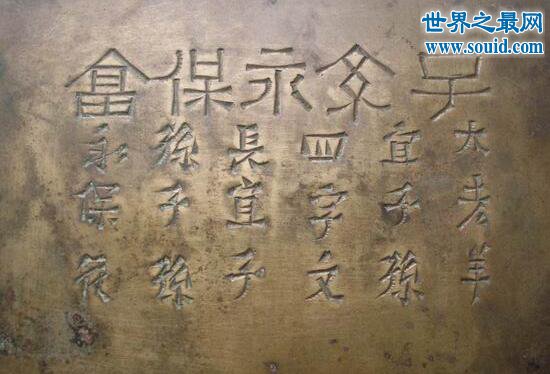 世界之最网
www.souid.com
永保
老羊
宜子孫
四字文
長宜子
孫子孫
永保